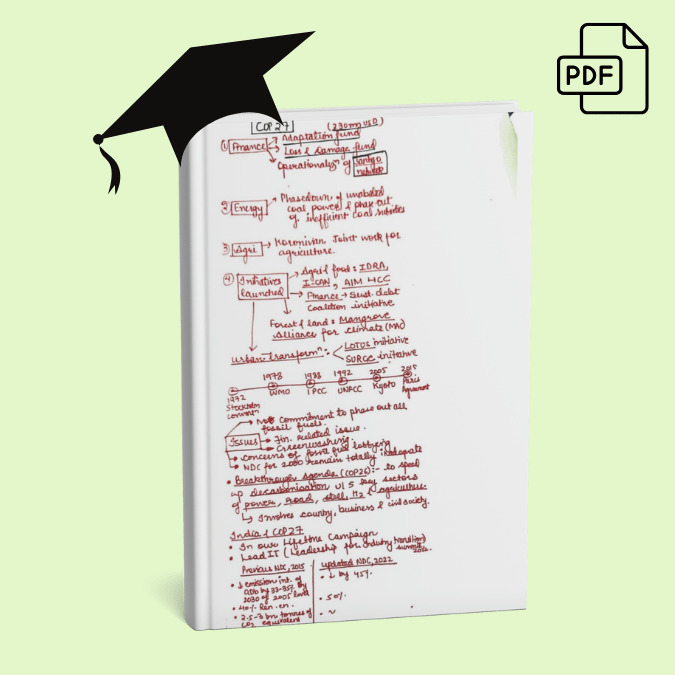 PDF
COP27 (230 mn USD)
① Finance → Adaptation fund
→ Loss & Damage fund
→ Operationalisn of Santiago network
② Energy → Phasedown of unabated
coal power & phase out
of inefficient coal subsidies
③ Agri → Koronivian Joint work for
agriculture.
④ Initiatives launched → Agri & food : IDRA,
I-CAN, AIM 4CC
→ Finance → Sust. debt
Coalition initiative
Forest & land : Mangrove
Alliance for Climate (MAC)
Urban Transformn : LOTUS initiative
SURGE initiative
1978 1988 1992 2005 2015
WMO IPCC UNFCC Kyoto Paris
Agreement
1972
Stockholm
convent
Issues → Not commitment to phase out all
fossil fuels.
→ Fin. related issue.
→ Greenwashing.
→ concerns of fossil fuel lobbying
→ NDC for 2030 remain totally inadequate
• Breakthrough agenda (COP26) :- to speed
up decarbonisation 5 key sectors
of power, road, steel, H2 & agriculture.
↳ Involves country, business & civil society.
India & COP27
• In our Lifetime Campaign
• LeadIT (Leadership for industry transition)
summit
Previous NDC, 2015
• ↓ emission int. of
GDP by 33-35% by
2030 of 2005 level
• 40% Ren. en.
• 2.5-3 bn tonnes of
CO2 equivalent
Updated NDC, 2022
• ↓ by 45%.
• 50%.
• ~